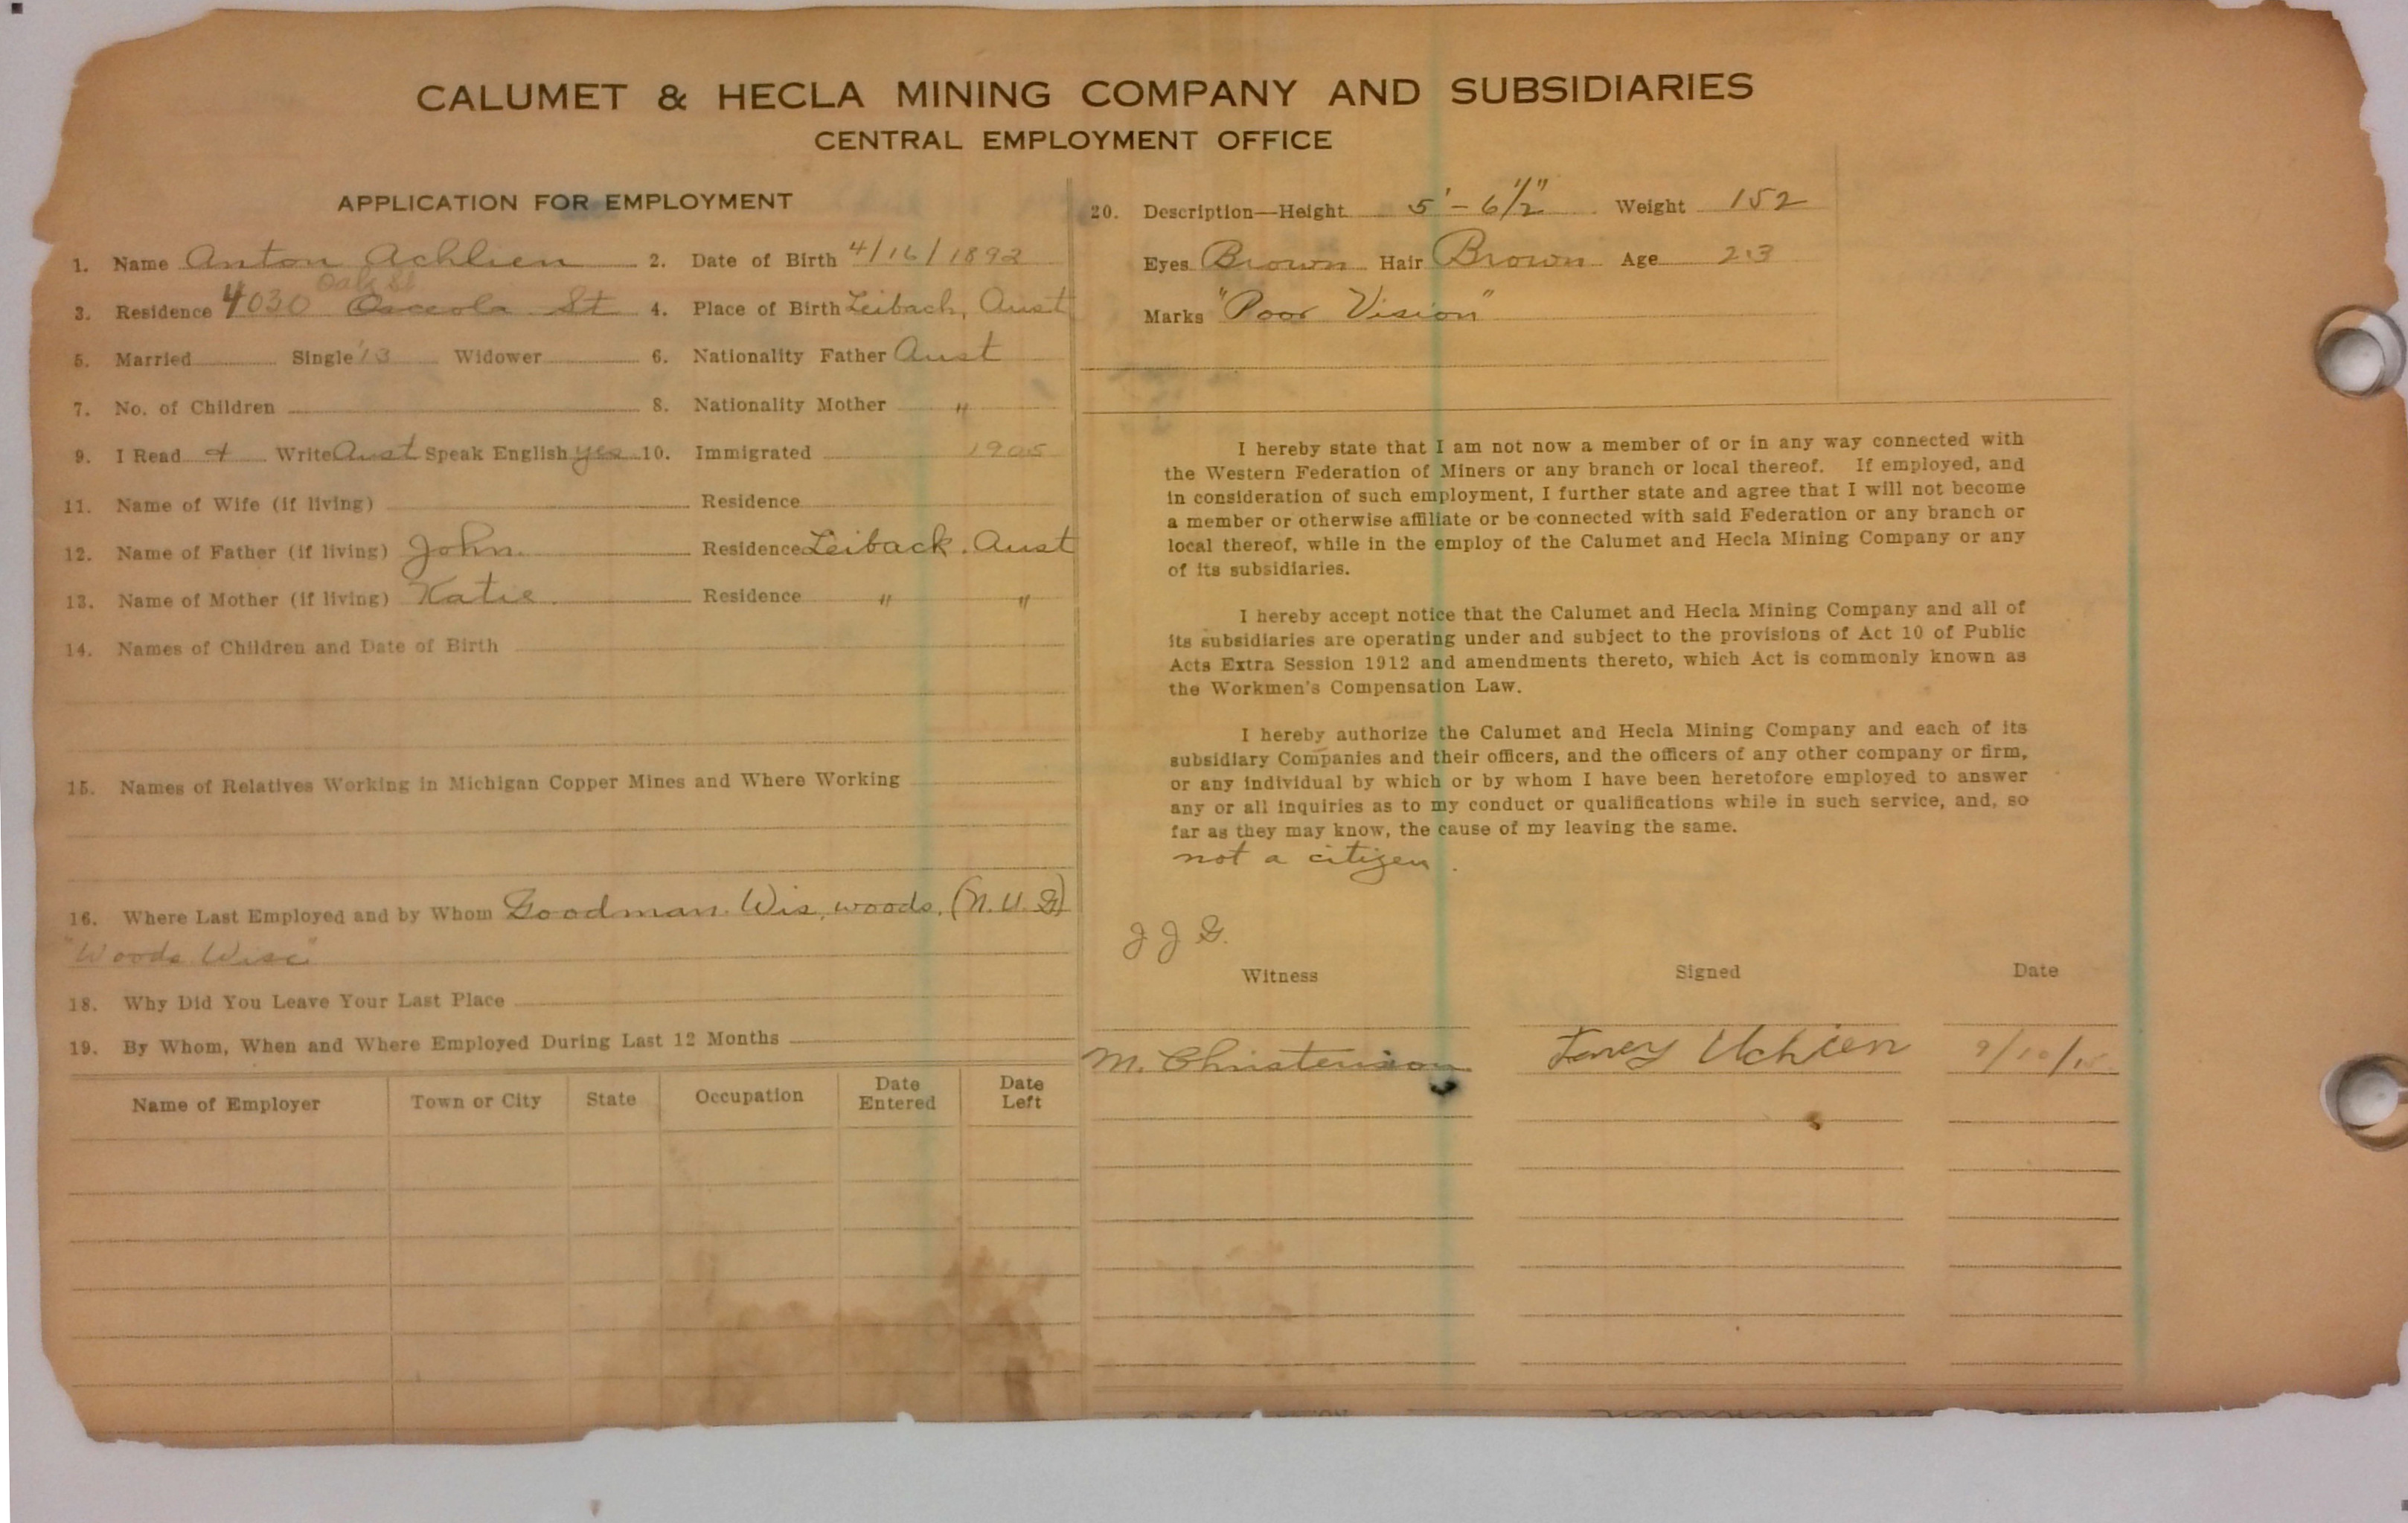 CALUMET & HECLA MINING COMPANY AND SUBSIDIARIES
CENTRAL EMPLOYMENT OFFICE
APPLICATION FOR EMPLOYMENT
1. Name Anton Achlien 2. Date of Birth 4/16/1892
Oak St
3. Residence 4030 Osceola St 4. Place of Birth Leibach, Aust
5. Married Single '13 Widower 6. Nationality Father Aust
7. No. of Children 8. Nationality Mother "
9. I Read & Write Aust Speak English yes 10. Immigrated 1905
11. Name of Wife (if living) Residence
12. Name of Father (if living) John. Residence Leiback. Aust
13. Name of Mother (if living) Katie. Residence " "
14. Names of Children and Date of Birth
15. Names of Relatives Working in Michigan Copper Mines and Where Working
16. Where Last Employed and by Whom Goodman. Wis, woods, (N.U.G)
"Woods Wisc"
18. Why Did You Leave Your Last Place
19. By Whom, When and Where Employed During Last 12 Months
Name of Employer Town or City State Occupation Date Entered Date Left
20. Description—Height 5' - 6 1/2" Weight 152
Eyes Brown Hair Brown Age 23
Marks "Poor Vision"
I hereby state that I am not now a member of or in any way connected with
the Western Federation of Miners or any branch or local thereof. If employed, and
in consideration of such employment, I further state and agree that I will not become
a member or otherwise affiliate or be connected with said Federation or any branch or
local thereof, while in the employ of the Calumet and Hecla Mining Company or any
of its subsidiaries.
I hereby accept notice that the Calumet and Hecla Mining Company and all of
its subsidiaries are operating under and subject to the provisions of Act 10 of Public
Acts Extra Session 1912 and amendments thereto, which Act is commonly known as
the Workmen's Compensation Law.
I hereby authorize the Calumet and Hecla Mining Company and each of its
subsidiary Companies and their officers, and the officers of any other company or firm,
or any individual by which or by whom I have been heretofore employed to answer
any or all inquiries as to my conduct or qualifications while in such service, and, so
far as they may know, the cause of my leaving the same.
not a citizen.
J J G.
Witness Signed Date
M. Christenson 9/10/15